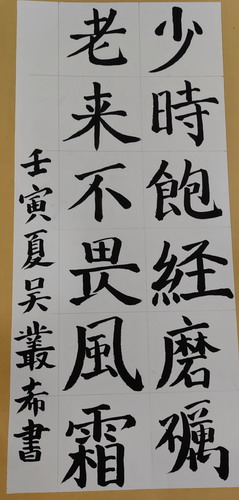 少時飽経磨礪
老来不畏風霜
壬寅夏吴叢希書